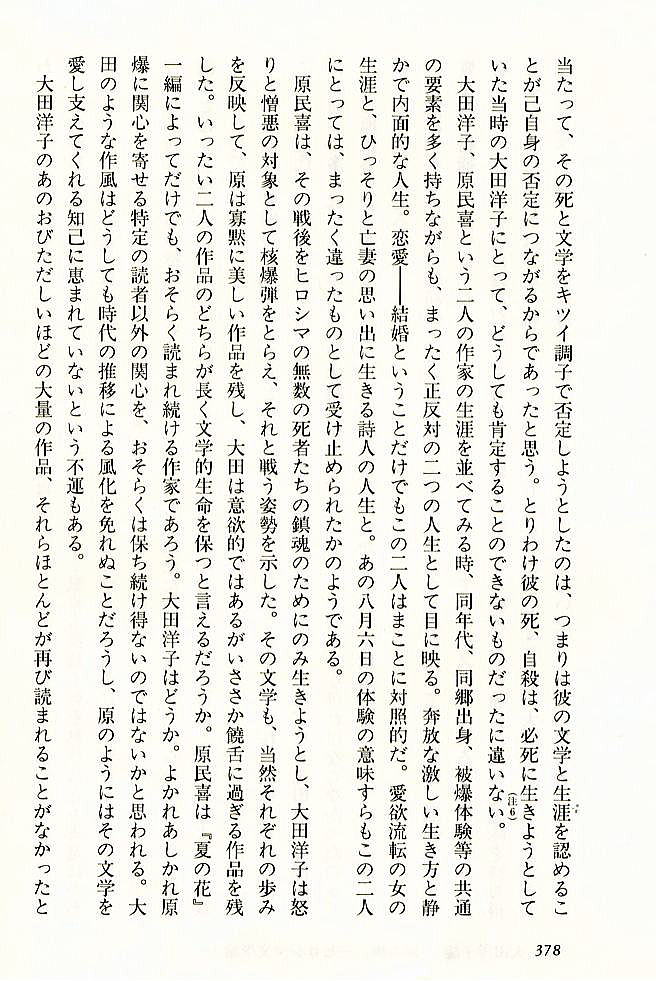 当たって、その死と文学をキツイ調子で否定しようとしたのは、つまりは彼の文学と生涯を認めるこ
とが己自身の否定につながるからであったと思う。とりわけ彼の死、自殺は、必死に生きようとして
いた当時の大田洋子にとって、どうしても肯定することのできないものだったに違いない。(注6)
大田洋子、原民喜という二人の作家の生涯を並べてみる時、同年代、同郷出身、被爆体験等の共通
の要素を多く持ちながらも、まったく正反対の二つの人生として目に映る。奔放な激しい生き方と静
かで内面的な人生。恋愛——結婚ということだけでもこの二人はまことに対照的だ。愛欲流転の女の
生涯と、ひっそりと亡妻の思い出に生きる詩人の人生と。あの八月六日の体験の意味すらもこの二人
にとっては、まったく違ったものとして受け止められたかのようである。
原民喜は、その戦後をヒロシマの無数の死者たちの鎮魂のためにのみ生きようとし、大田洋子は怒
りと憎悪の対象として核爆弾をとらえ、それと戦う姿勢を示した。その文学も、当然それぞれの歩み
を反映して、原は寡黙に美しい作品を残し、大田は意欲的ではあるがいささか饒舌に過ぎる作品を残
した。いったい二人の作品のどちらが長く文学的生命を保つと言えるだろうか。原民喜は『夏の花』
一編によってだけでも、おそらく読まれ続ける作家であろう。大田洋子はどうか。よかれあしかれ原
爆に関心を寄せる特定の読者以外の関心を、おそらくは保ち続け得ないのではないかと思われる。大
田のような作風はどうしても時代の推移による風化を免れぬことだろうし、原のようにはその文学を
愛し支えてくれる知己に恵まれていないという不運もある。
大田洋子のあのおびただしいほどの大量の作品、それらほとんどが再び読まれることがなかったと
378